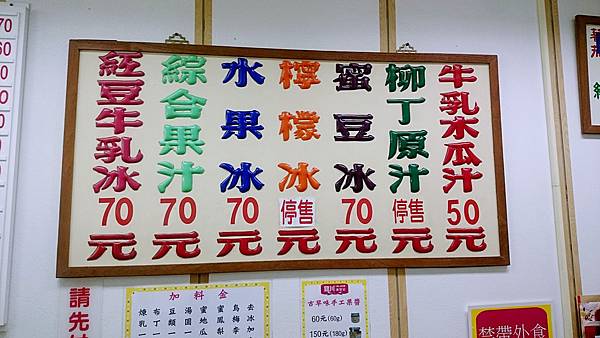 牛乳木瓜汁50元
柳丁原汁停售元
蜜豆冰70元
檸檬冰停售元
水果冰70元
綜合果汁70元
紅豆牛乳冰70元
70
60
請先
加料金
去冰加
烏梅李
蜜鳳梨
蜜地瓜
湯圓
豆類
布丁
煉乳
古早味手工果醬
60元(60g)
150元(180g)
禁帶外食